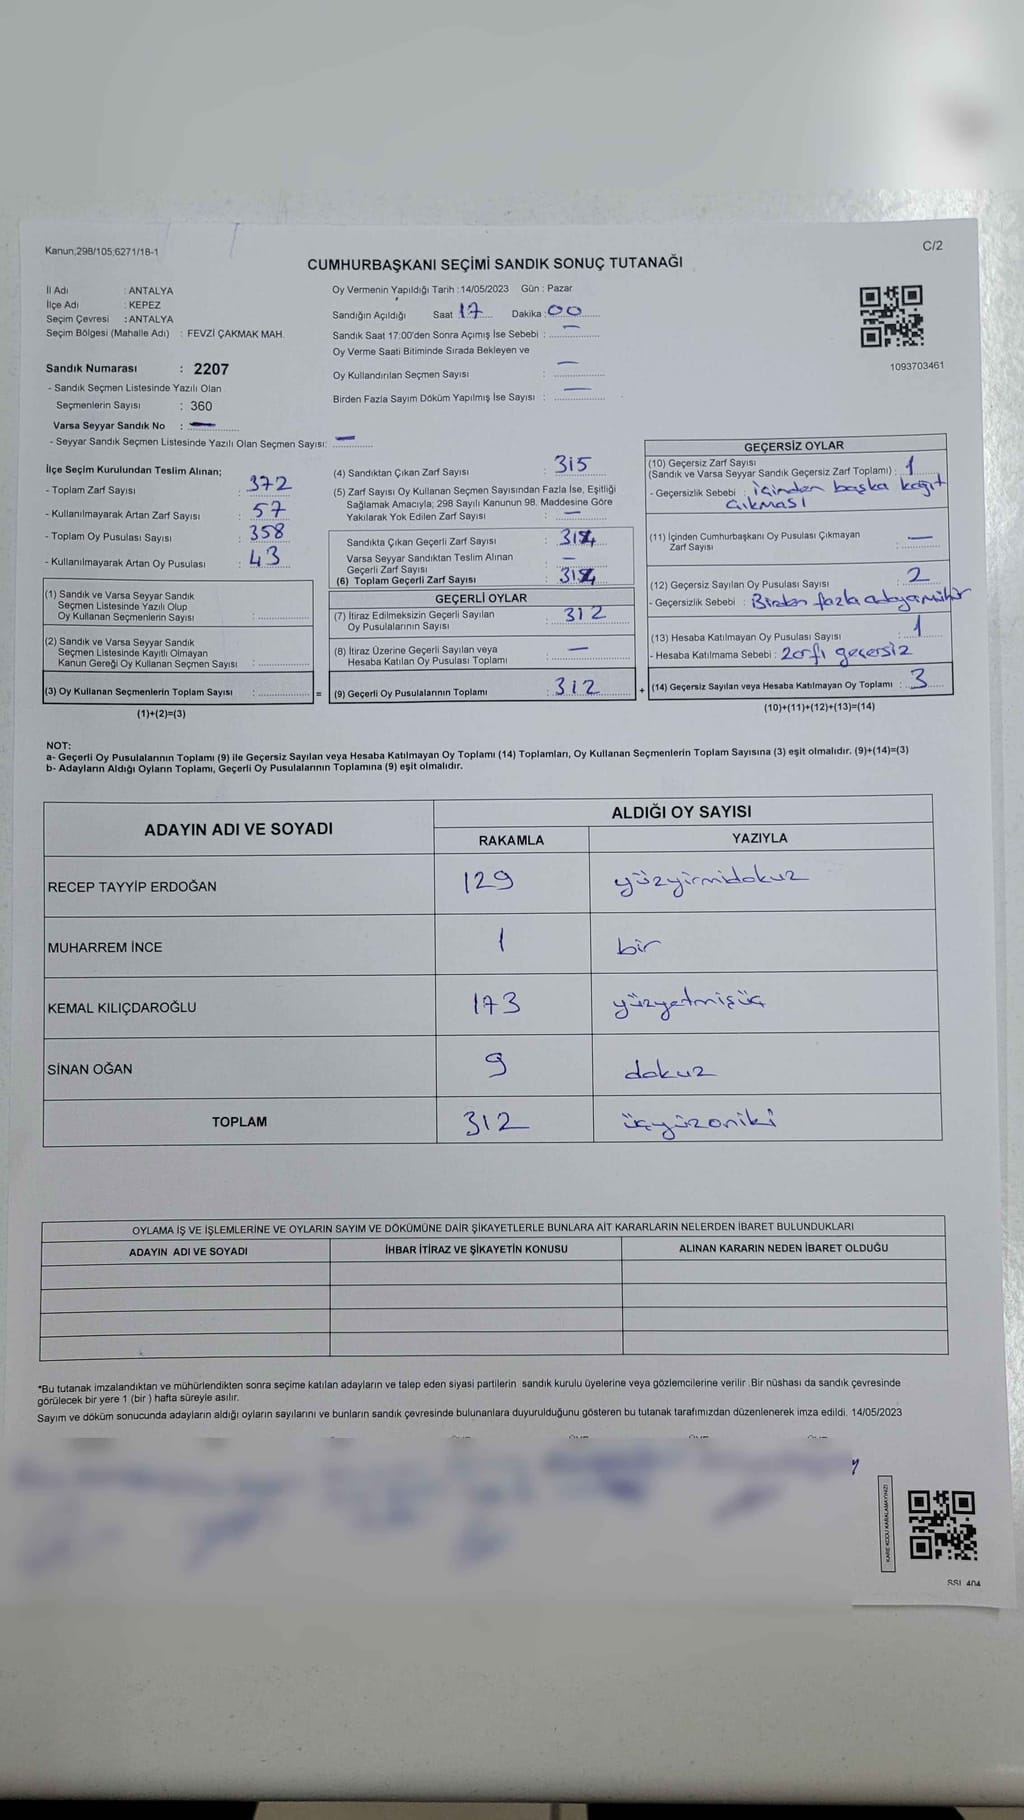 Kanun;298/105,6271/18-1
C/2
CUMHURBAŞKANI SEÇİMİ SANDIK SONUÇ TUTANAĞI
İl Adı : ANTALYA
İlçe Adı : KEPEZ
Seçim Çevresi : ANTALYA
Seçim Bölgesi (Mahalle Adı) : FEVZİ ÇAKMAK MAH.
Sandık Numarası : 2207
- Sandık Seçmen Listesinde Yazılı Olan
Seçmenlerin Sayısı : 360
Varsa Seyyar Sandık No : —
- Seyyar Sandık Seçmen Listesinde Yazılı Olan Seçmen Sayısı: —
Oy Vermenin Yapıldığı Tarih : 14/05/2023 Gün : Pazar
Sandığın Açıldığı Saat 17 Dakika : 00
Sandık Saat 17:00'den Sonra Açımış İse Sebebi : —
Oy Verme Saati Bitiminde Sırada Bekleyen ve
Oy Kullandırılan Seçmen Sayısı : —
Birden Fazla Sayım Döküm Yapılmış İse Sayısı : —
1093703461
İlçe Seçim Kurulundan Teslim Alınan;
- Toplam Zarf Sayısı : 372
- Kullanılmayarak Artan Zarf Sayısı : 57
- Toplam Oy Pusulası Sayısı : 358
- Kullanılmayarak Artan Oy Pusulası : 43
(1) Sandık ve Varsa Seyyar Sandık
Seçmen Listesinde Yazılı Olup
Oy Kullanan Seçmenlerin Sayısı :
(2) Sandık ve Varsa Seyyar Sandık
Seçmen Listesinde Kayıtlı Olmayan
Kanun Gereği Oy Kullanan Seçmen Sayısı :
(3) Oy Kullanan Seçmenlerin Toplam Sayısı : =
(1)+(2)=(3)
(4) Sandıktan Çıkan Zarf Sayısı : 315
(5) Zarf Sayısı Oy Kullanan Seçmen Sayısından Fazla İse, Eşitliği
Sağlamak Amacıyla; 298 Sayılı Kanunun 98. Maddesine Göre
Yakılarak Yok Edilen Zarf Sayısı : —
Sandıkta Çıkan Geçerli Zarf Sayısı : 314
Varsa Seyyar Sandıktan Teslim Alınan
Geçerli Zarf Sayısı : —
(6) Toplam Geçerli Zarf Sayısı : 314
GEÇERLİ OYLAR
(7) İtiraz Edilmeksizin Geçerli Sayılan
Oy Pusulalarının Sayısı : 312
(8) İtiraz Üzerine Geçerli Sayılan veya
Hesaba Katılan Oy Pusulası Toplamı : —
(9) Geçerli Oy Pusulalarının Toplamı : 312 +
GEÇERSİZ OYLAR
(10) Geçersiz Zarf Sayısı
(Sandık ve Varsa Seyyar Sandık Geçersiz Zarf Toplamı) : 1
- Geçersizlik Sebebi : içinden başka kağıt
çıkması
(11) İçinden Cumhurbaşkanı Oy Pusulası Çıkmayan
Zarf Sayısı : —
(12) Geçersiz Sayılan Oy Pusulası Sayısı : 2
- Geçersizlik Sebebi : Birden fazla adaya mühür
(13) Hesaba Katılmayan Oy Pusulası Sayısı : 1
- Hesaba Katılmama Sebebi : zarfı geçersiz
(14) Geçersiz Sayılan veya Hesaba Katılmayan Oy Toplamı : 3
(10)+(11)+(12)+(13)=(14)
NOT:
a- Geçerli Oy Pusulalarının Toplamı (9) ile Geçersiz Sayılan veya Hesaba Katılmayan Oy Toplamı (14) Toplamları, Oy Kullanan Seçmenlerin Toplam Sayısına (3) eşit olmalıdır. (9)+(14)=(3)
b- Adayların Aldığı Oyların Toplamı, Geçerli Oy Pusulalarının Toplamına (9) eşit olmalıdır.
ADAYIN ADI VE SOYADI
ALDIĞI OY SAYISI
RAKAMLA YAZIYLA
RECEP TAYYİP ERDOĞAN 129 yüzyirmidokuz
MUHARREM İNCE 1 bir
KEMAL KILIÇDAROĞLU 173 yüzyetmişüç
SİNAN OĞAN 9 dokuz
TOPLAM 312 üçyüzoniki
OYLAMA İŞ VE İŞLEMLERİNE VE OYLARIN SAYIM VE DÖKÜMÜNE DAİR ŞİKAYETLERLE BUNLARA AİT KARARLARIN NELERDEN İBARET BULUNDUKLARI
ADAYIN ADI VE SOYADI İHBAR İTİRAZ VE ŞİKAYETİN KONUSU ALINAN KARARIN NEDEN İBARET OLDUĞU
*Bu tutanak imzalandıktan ve mühürlendikten sonra seçime katılan adayların ve talep eden siyasi partilerin sandık kurulu üyelerine veya gözlemcilerine verilir .Bir nüshası da sandık çevresinde
görülecek bir yere 1 (bir ) hafta süreyle asılır.
Sayım ve döküm sonucunda adayların aldığı oyların sayılarını ve bunların sandık çevresinde bulunanlara duyurulduğunu gösteren bu tutanak tarafımızdan düzenlenerek imza edildi. 14/05/2023
KARE KODU KARALAMAYINIZ!